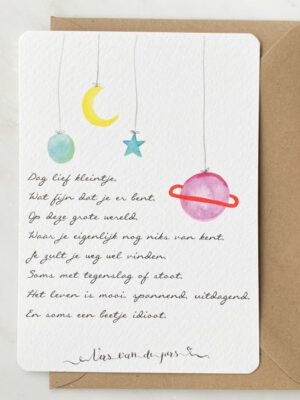 Dag lief kleintje.
Wat fijn dat je er bent.
Op deze grote wereld.
Waar je eigenlijk nog niks van kent.
Je zult je weg wel vinden.
Soms met tegenslag of stoot.
Het leven is mooi, spannend, uitdagend.
En soms een beetje idioot.
Vers van de pers